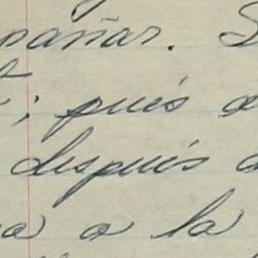 pañar.
; pués a
después
a a la